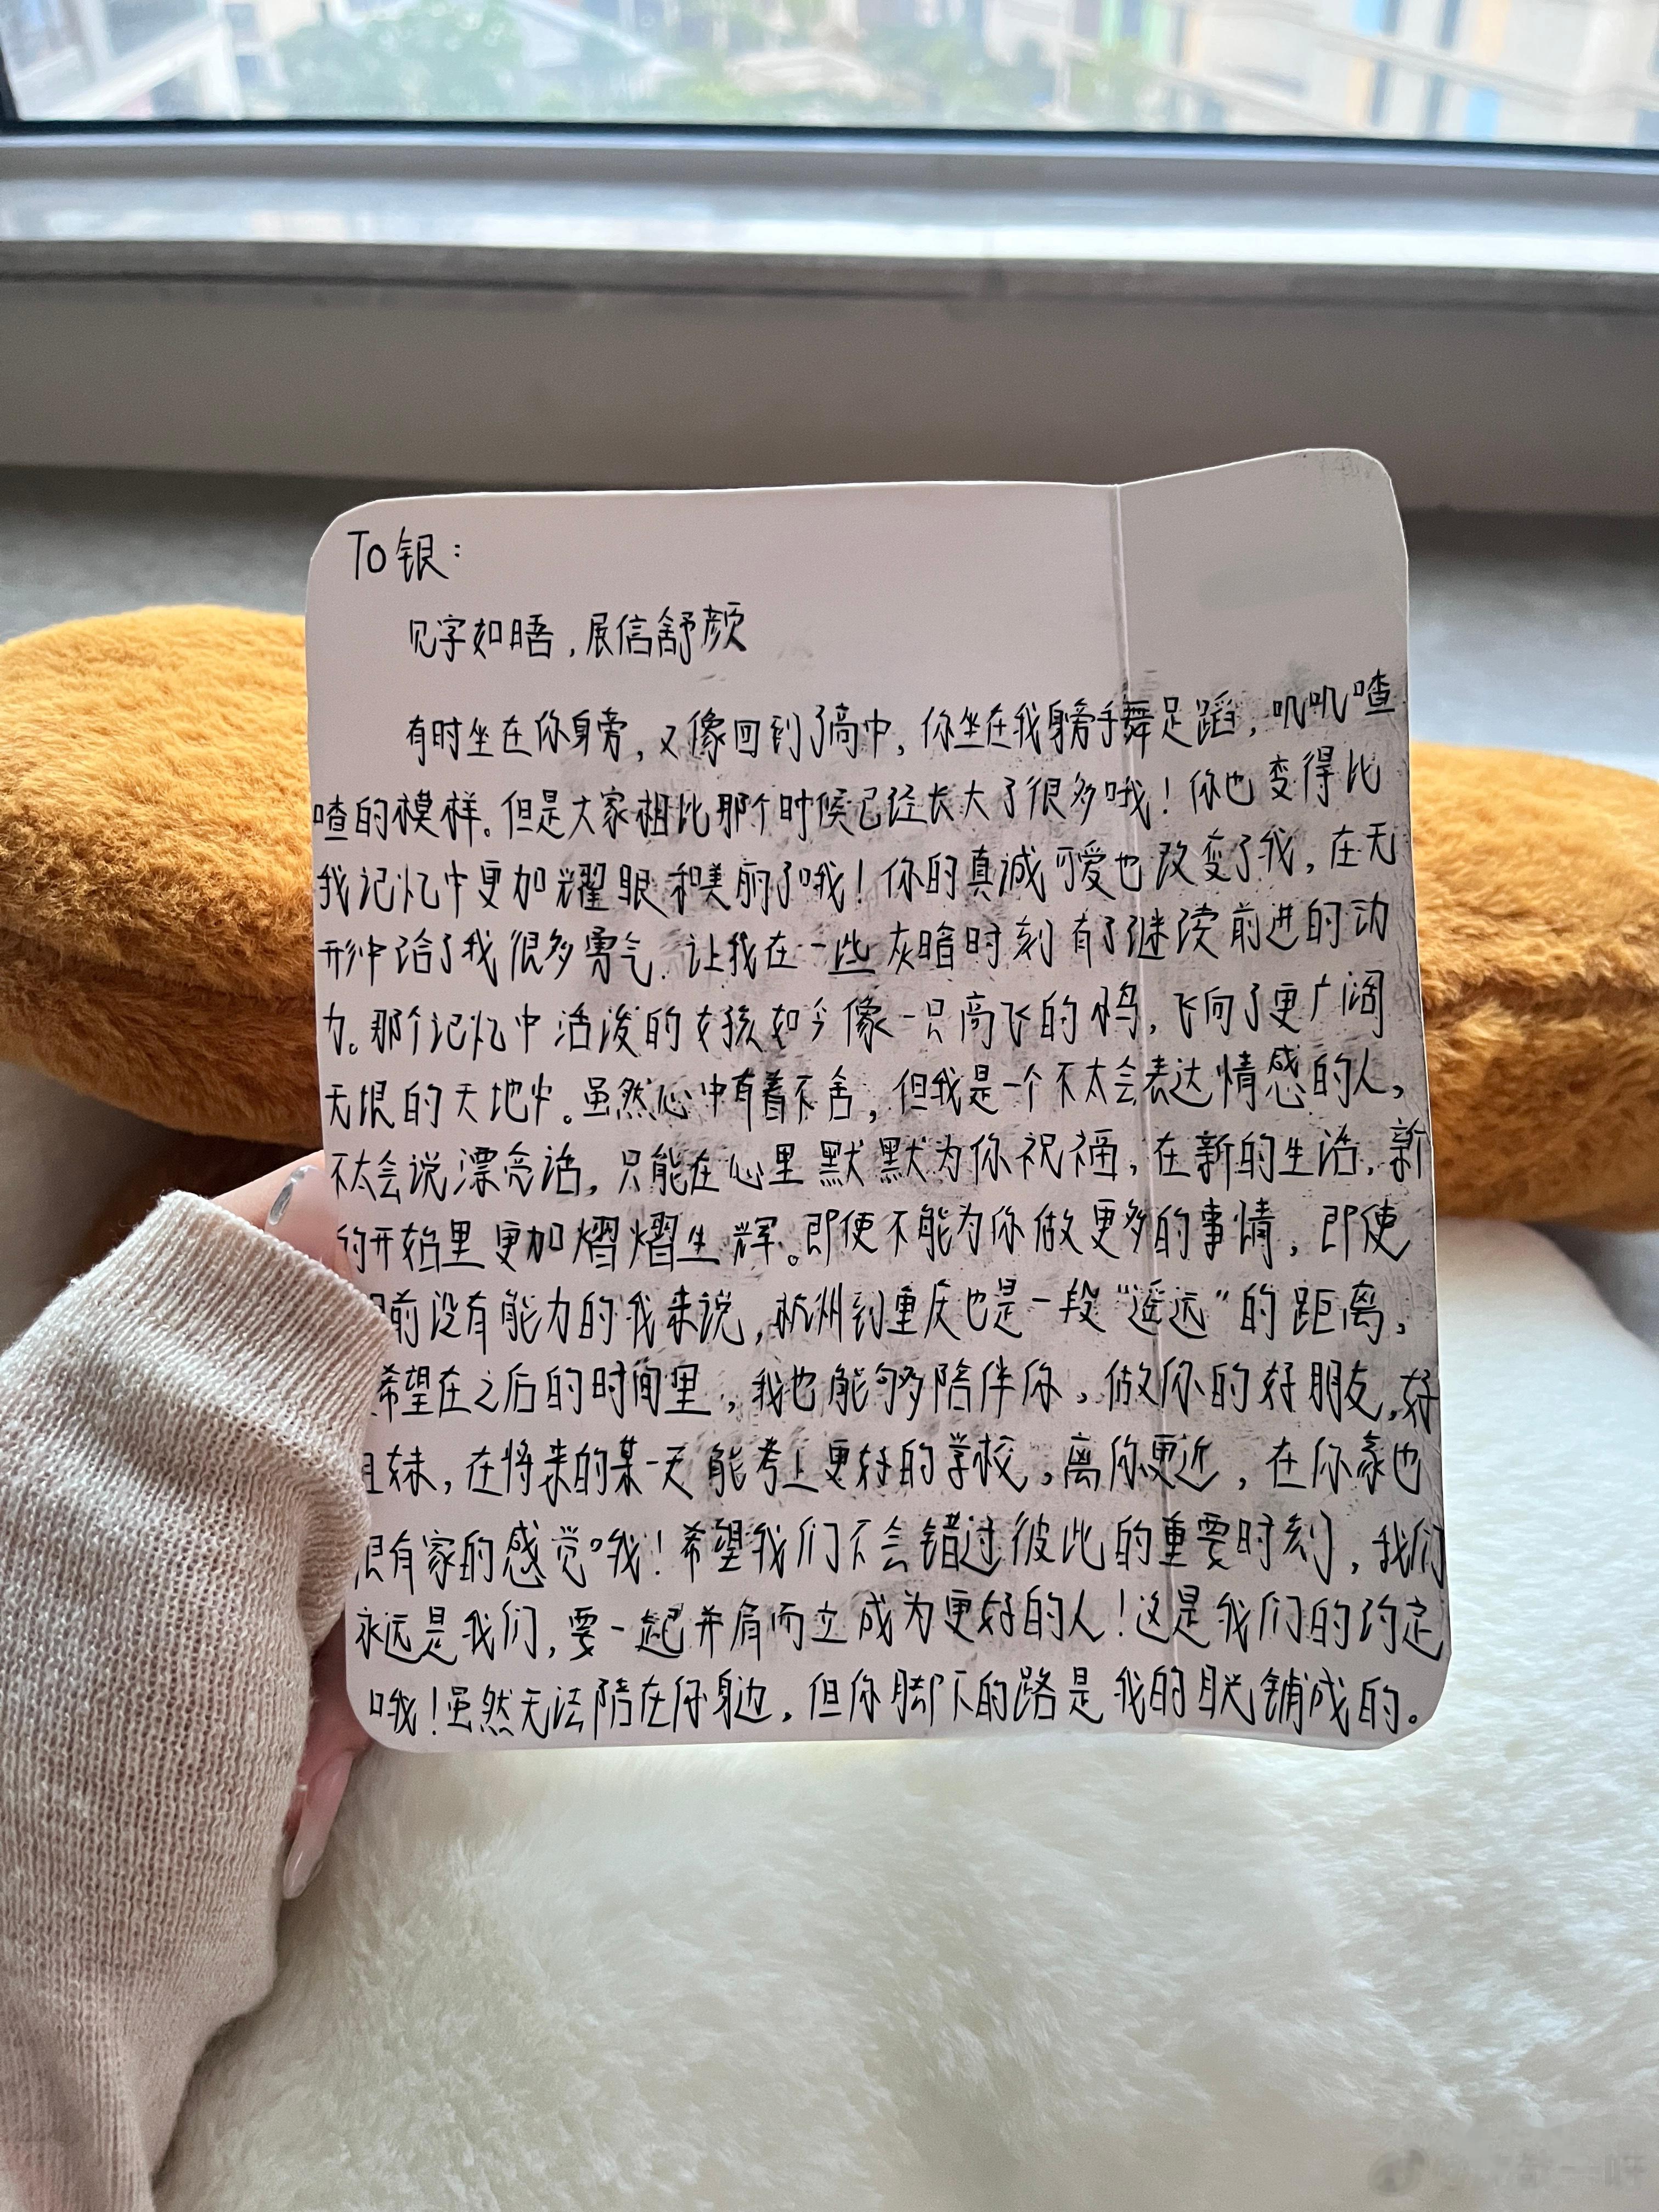 To 银：
见字如晤，展信舒颜
有时坐在你身旁，又像回到了高中，你坐在我身旁手舞足蹈，叽叽喳
喳的模样。但是大家相比那个时候已经长大了很多哦！你也变得比
我记忆中更加耀眼和美丽了哦！你的真诚可爱也改变了我，在无
形中给了我很多勇气，让我在一些灰暗时刻有了继续前进的动
力。那个记忆中活泼的女孩如今像一只高飞的鸟，飞向了更广阔
无垠的天地中。虽然心中有着不舍，但我是一个不太会表达情感的人，
不太会说漂亮话，只能在心里默默为你祝福，在新的生活，新
的开始里更加熠熠生辉。即使不能为你做更多的事情，即使
前没有能力的我来说，杭州到重庆也是一段“遥远”的距离，
希望在之后的时间里，我也能够陪伴你，做你的好朋友，好
姐妹，在将来的某一天能考上更好的学校，离你更近，在你家也
很有家的感觉哦！希望我们不会错过彼此的重要时刻，我们
永远是我们，要一起并肩而立成为更好的人！这是我们的约定
哦！虽然无法陪在你身边，但你脚下的路是我的目光铺成的。